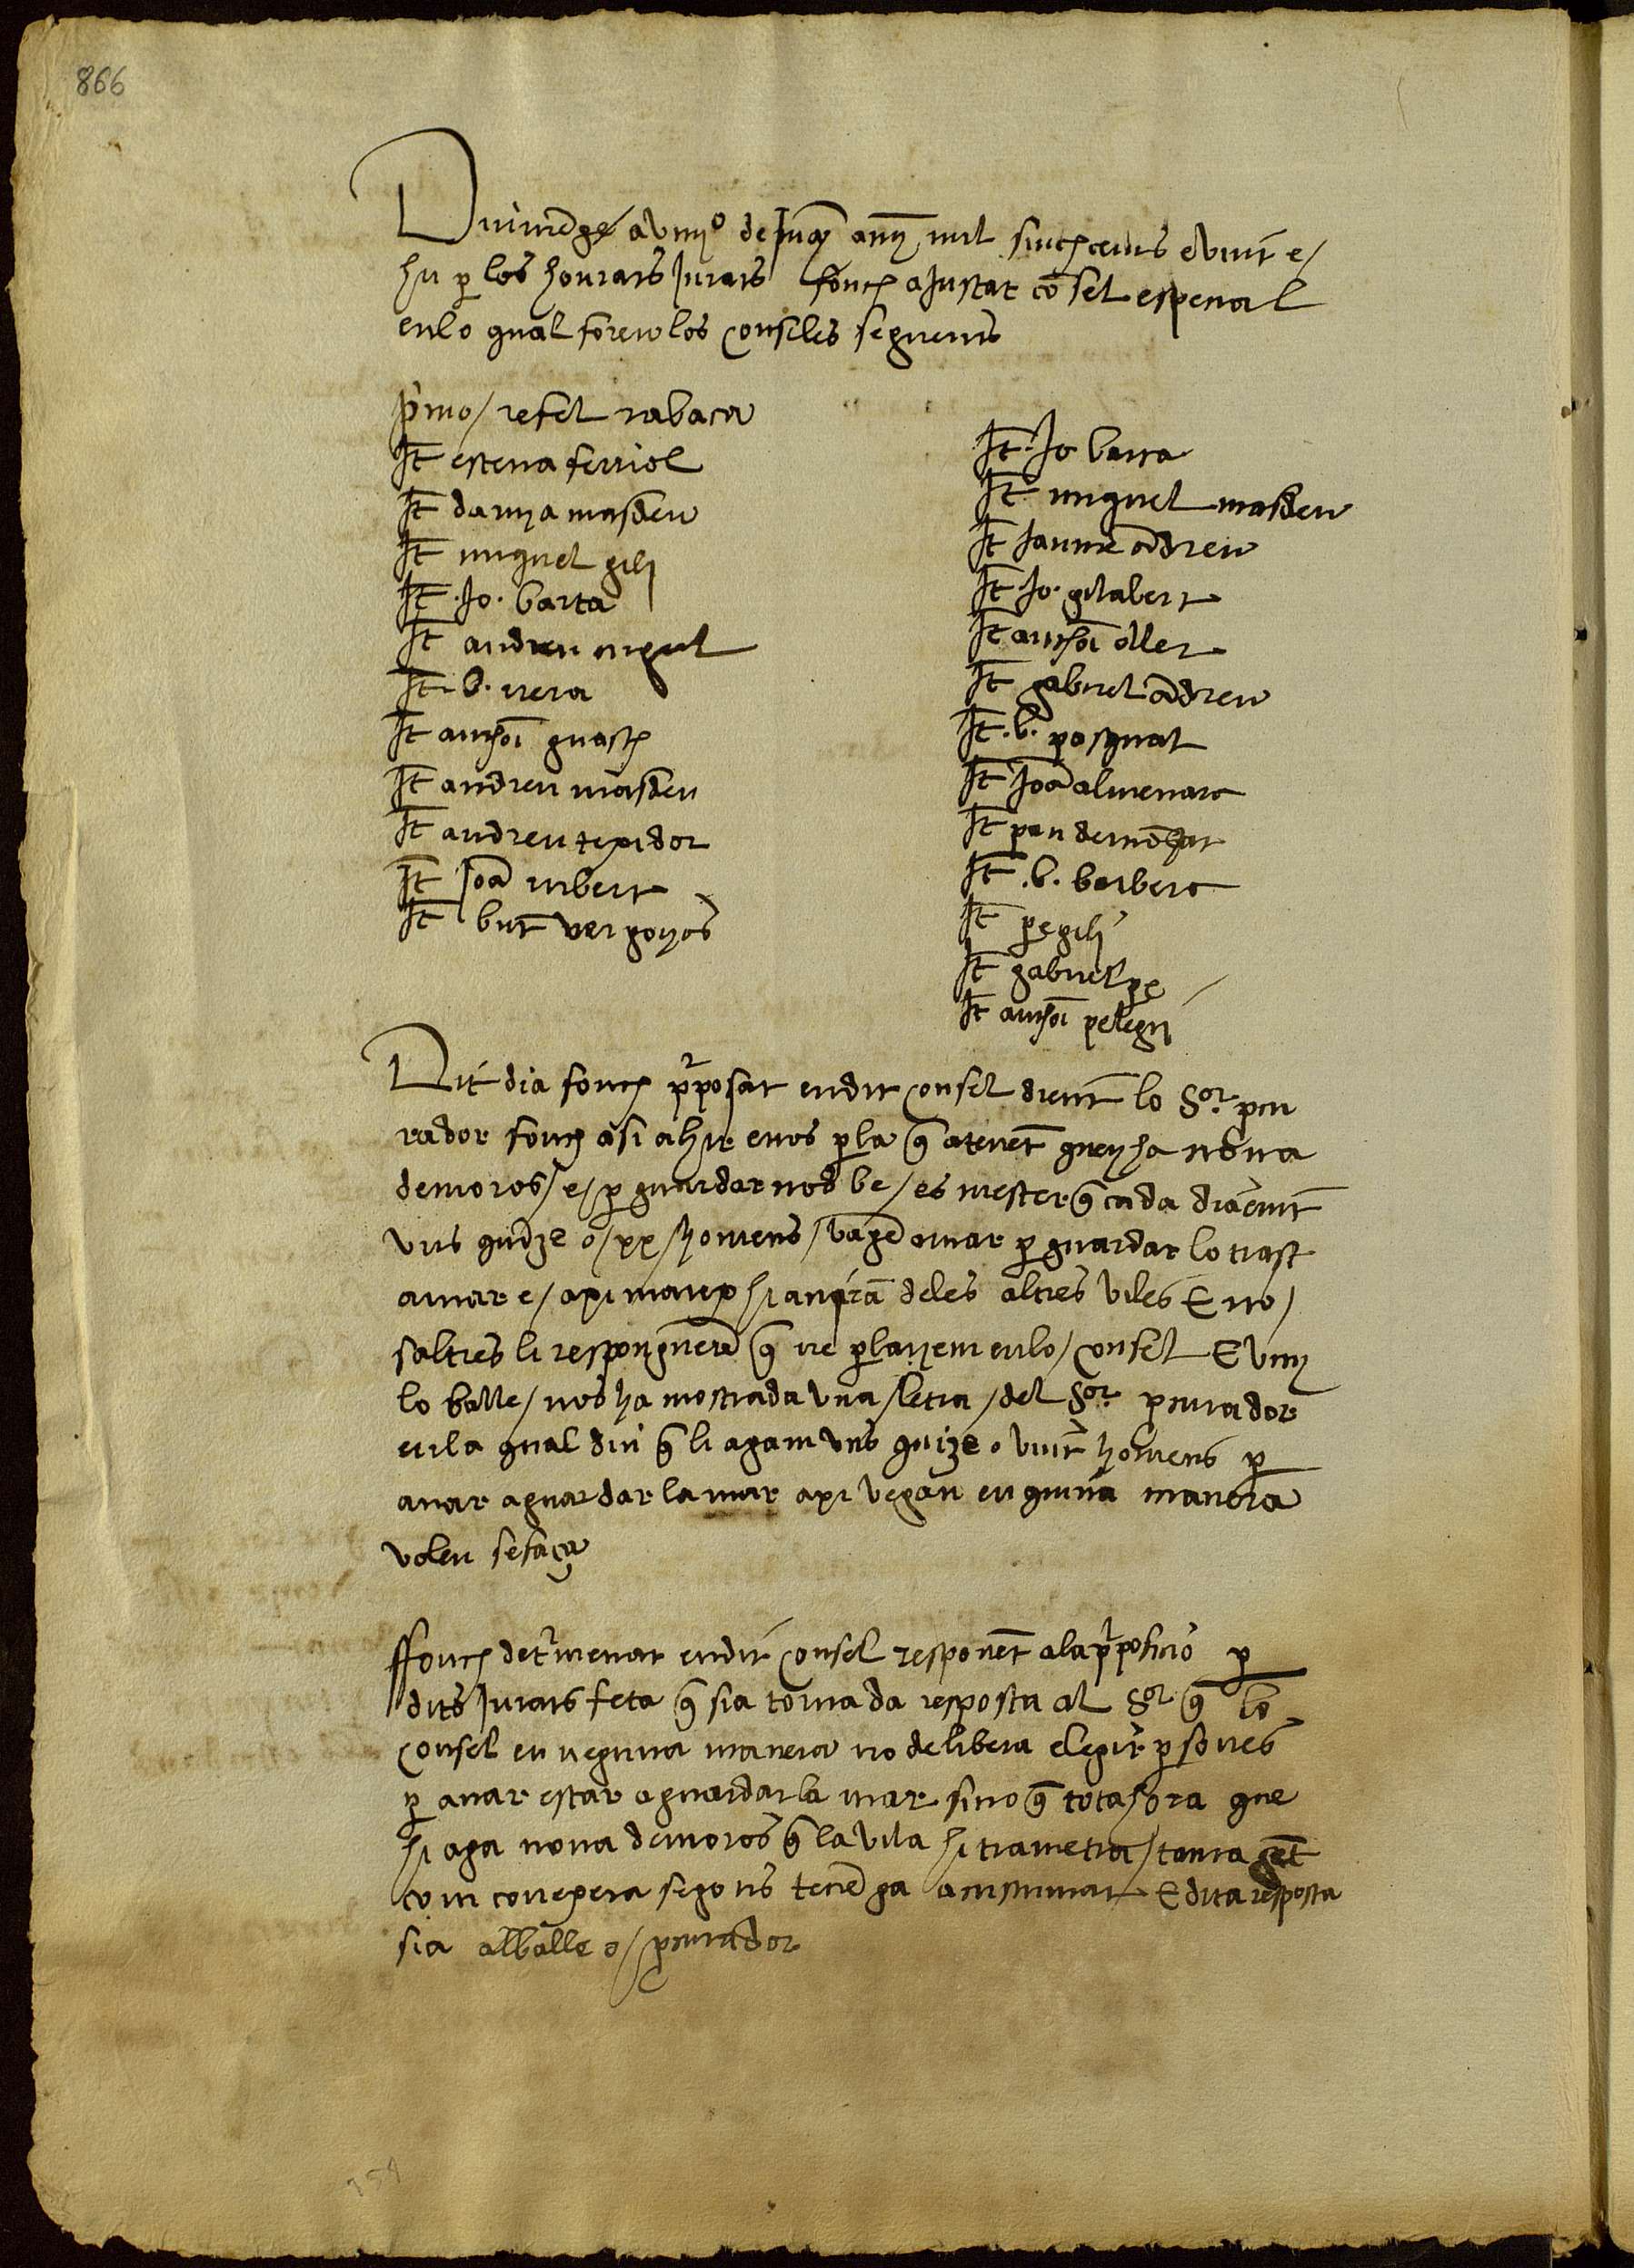 866
Diumẽge a viiijº de Juny any mil sinchcents e vint e/
hu p los honrats Jurats fonch aJustat cõsel espesial
en lo qual foren los conseles seguents
p̃mo/ refel rabaca
It esteva ferriol
It damya masdeu
It miguel gili
It .Jo. barta
It andreu
It .b. vera
It anthoi guasch
It andreu masdeu
It andreu texidor
It Joã rubert
It bnt vergonyos
It .Jo barta
It miguel masdeu
It Jaume ãdreu
It .Jo. gilabert
It anthoi oller
It gabriel ãdreu
It .b. pasqual
It Joã almenara
It pau de mõtfar
It .b. barbera
It pe gili
It gabriel pe
It anthoi pelegri
Dit dia fonch pposat en dit consel dient lo Sor. pcu
rador fonch asi ahir e nos parla q̃ atenẽt que y ha nova
de moros/ e/ p guardar nos be/ es mester q̃ cada dia vint
uns quize o/ xx/ homens/ vagẽ a mar p guardar lo trast
a mar e/ axi mateix hi aniran de les altres viles E no/
saltres li respongueré q̃ ne parlariem en lo/ consel E vuy
lo balle/ nos ha mostrada una/ letra/ del Sor. pcurador
en la qual diu q̃ li agam uns quize o vint homens p
anar a guardar la mar axi vegan en quina manera
volen se faça
ffonch determenat en dit consel responẽt a la pposicio p
dits Jurats feta q̃ sia tornada resposta al Sor q̃ lo
consel en neguna manera no delibera elegir psones
p anar estar a guardar la mar sino q̃ tota hora que
hi aga nova de moros q̃ la vila hi trametra/ tanta gẽt
com convexera segons tenẽ ga acustumat E dita resposta
sia al balle o/ pcurador